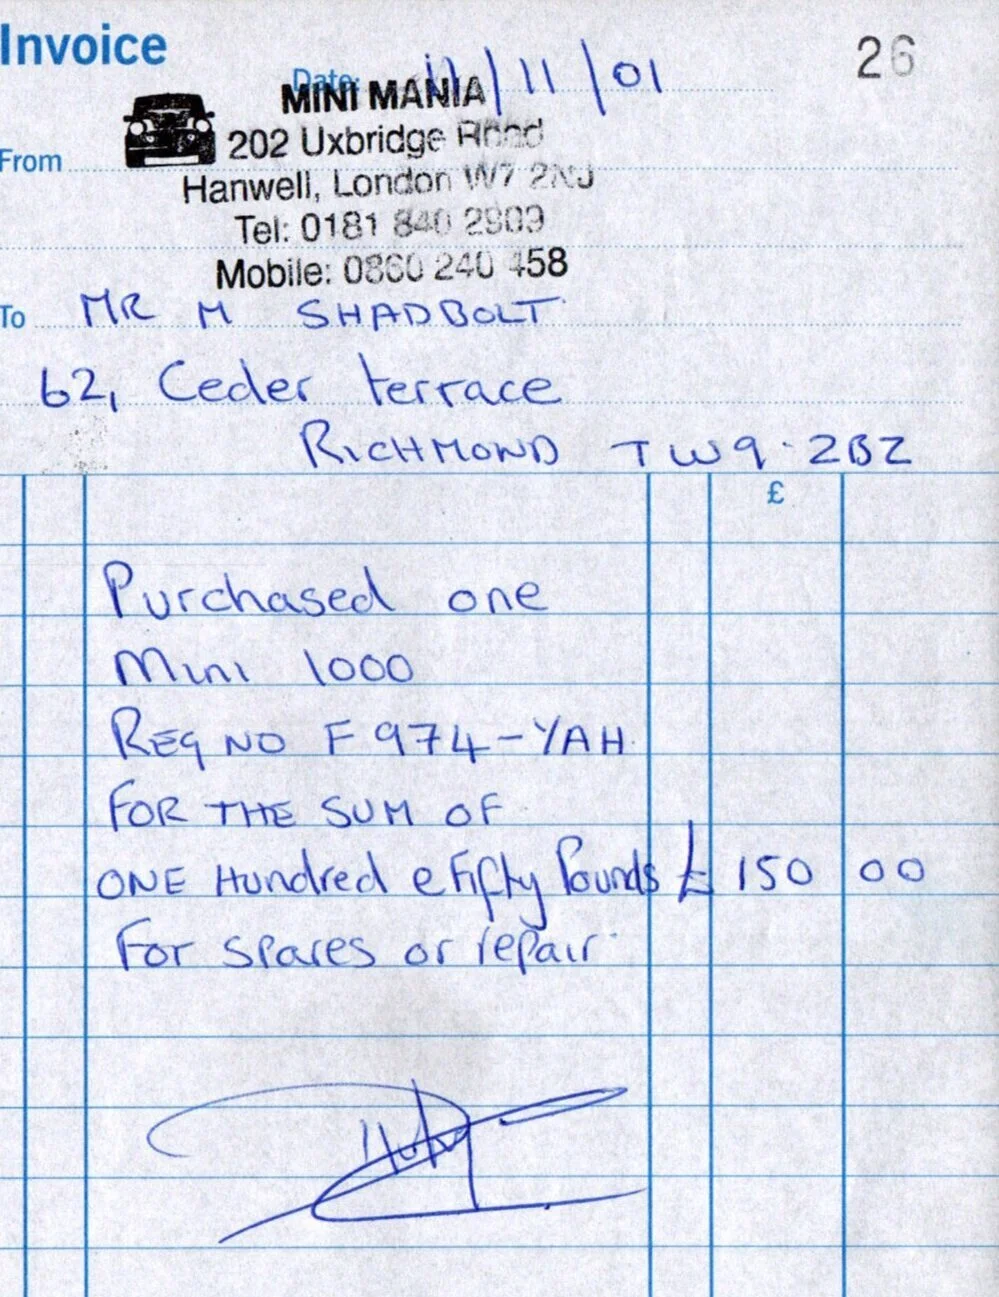 Invoice
26
Date: 11/11/01
MINI MANIA
202 Uxbridge Road
From
Hanwell, London W7 2NJ
Tel: 0181 840 2909
Mobile: 0860 240 458
To MR M SHADBOLT
62, Ceder terrace
RICHMOND TW9 2BZ
£
Purchased one
Mini 1000
REG NO F974-YAH
FOR THE SUM OF
ONE Hundred e Fifty Pounds £ 150 00
For spares or repair